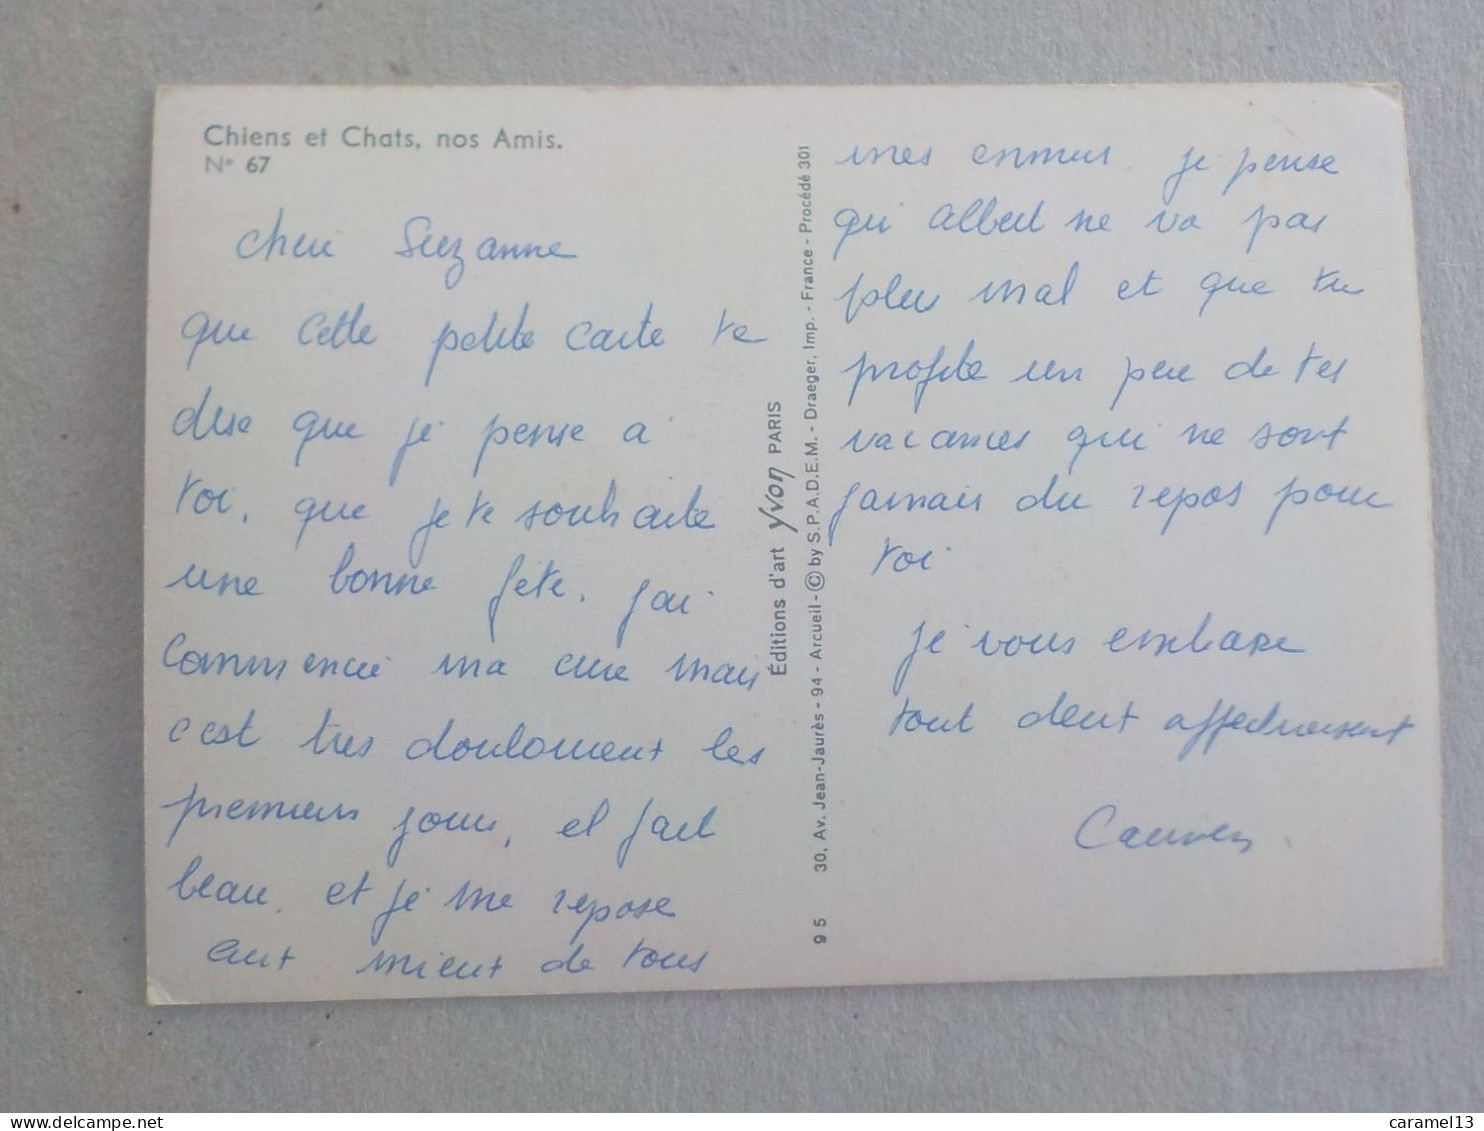 Chiens et Chats, nos Amis.
N° 67
cheri Suzanne
que cette petite carte te
dise que je pense a
toi, que je te souhaite
une bonne fête. j'ai
commencé ma cure mais
c'est tres douloureux les
premiers jours, il fait
beau. et je me repose
aux mieux de tous
mes ennuis. je pense
que Albert ne va pas
plus mal et que tu
profite un peu de tes
vacances qui ne sont
jamais du repos pour
toi
je vous embrasse
tout deux affectueusement
Éditions d'art yvon PARIS
9 5 30, Av. Jean-Jaurès - 94 - Arcueil - © by S.P.A.D.E.M. - Draeger, Imp. - France - Procédé 301
caramel13